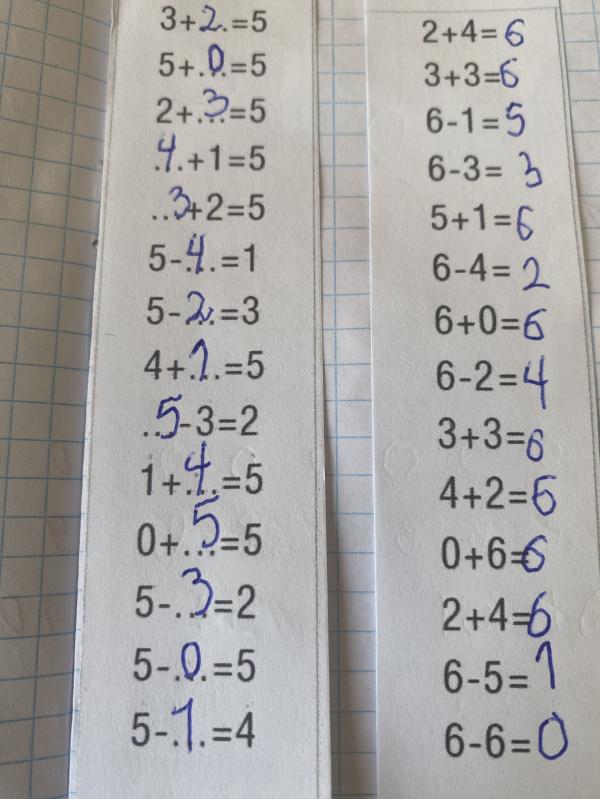 3+2=5
5+0=5
2+3=5
4+1=5
3+2=5
5-4=1
5-2=3
4+1=5
5-3=2
1+4=5
0+5=5
5-3=2
5-0=5
5-1=4
2+4=6
3+3=6
6-1=5
6-3=3
5+1=6
6-4=2
6+0=6
6-2=4
3+3=6
4+2=6
0+6=6
2+4=6
6-5=1
6-6=0